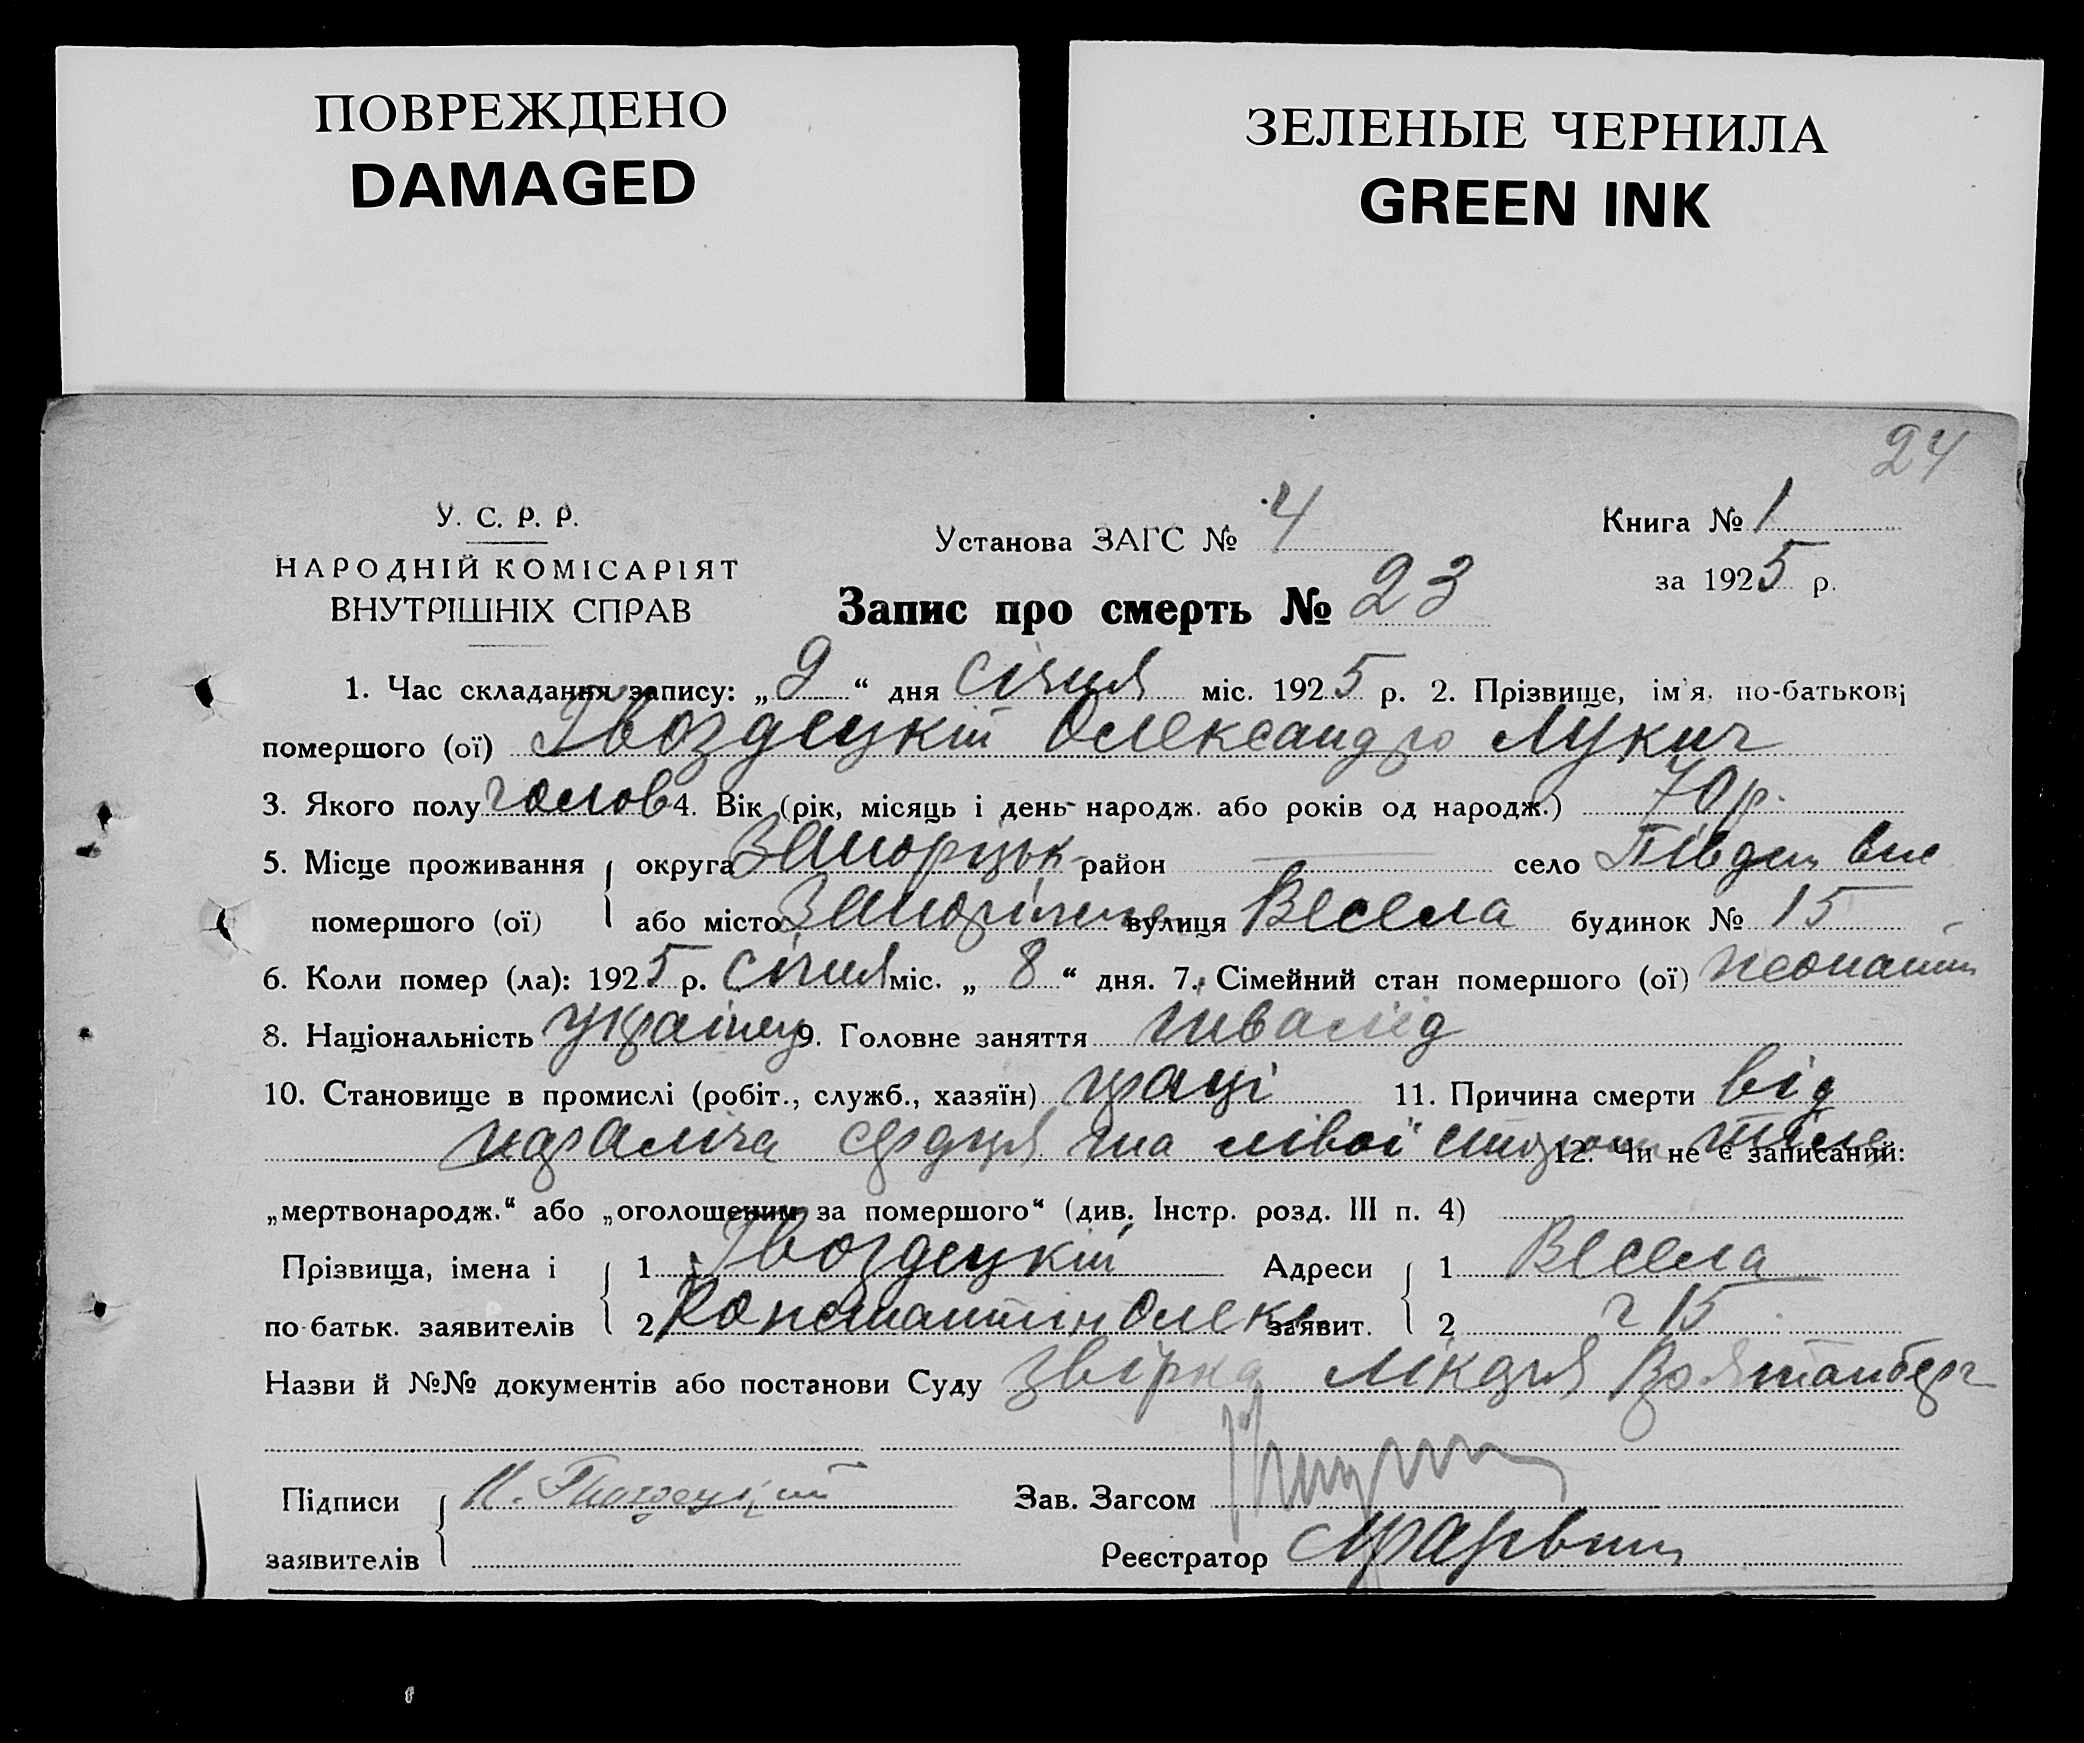 ПОВРЕЖДЕНО
DAMAGED
ЗЕЛЕНЫЕ ЧЕРНИЛА
GREEN INK
24
У. С. Р. Р.
НАРОДНІЙ КОМІСАРІЯТ
ВНУТРІШНІХ СПРАВ
Установа ЗАГС № 4
Запис про смерть № 23
Книга № 1
за 1925 р.
1. Час складання запису: „9“ дня січня міс. 1925 р. 2. Прізвище, ім'я, по-батькові
помершого (ої) Гвоздецкій Олександр Лукич
3. Якого полу чолов 4. Вік (рік, місяць і день народж. або років од народж.) 70 р.
5. Місце проживання округа Запоріцьк район село Півден
помершого (ої) або місто Запоріжже вулиця Весела будинок № 15
6. Коли помер (ла): 1925 р. січня міс. „8“ дня. 7. Сімейний стан помершого (ої) жонатий
8. Національність українец 9. Головне заняття інвалід
10. Становище в промислі (робіт., служб., хазяїн) праці 11. Причина смерти від
параліча сердця та лівої сторони тіла 12. Чи не є записаний:
„мертвонародж.“ або „оголошеним за помершого“ (див. Інстр. розд. III п. 4)
Прізвища, імена і 1 Гвоздецкій Адреси 1 Весела
по-батьк. заявителів 2 Константін Олекс заявит. 2 ч 15
Назви й №№ документів або постанови Суду лікаря
Підписи К. Гвоздецкий Зав. Загсом
заявителів Реєстратор